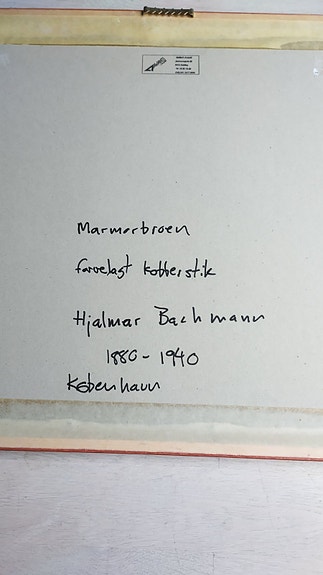 Marmorbroen
farvelagt kobberstik
Hjalmar Bachmann
1880-1940
København